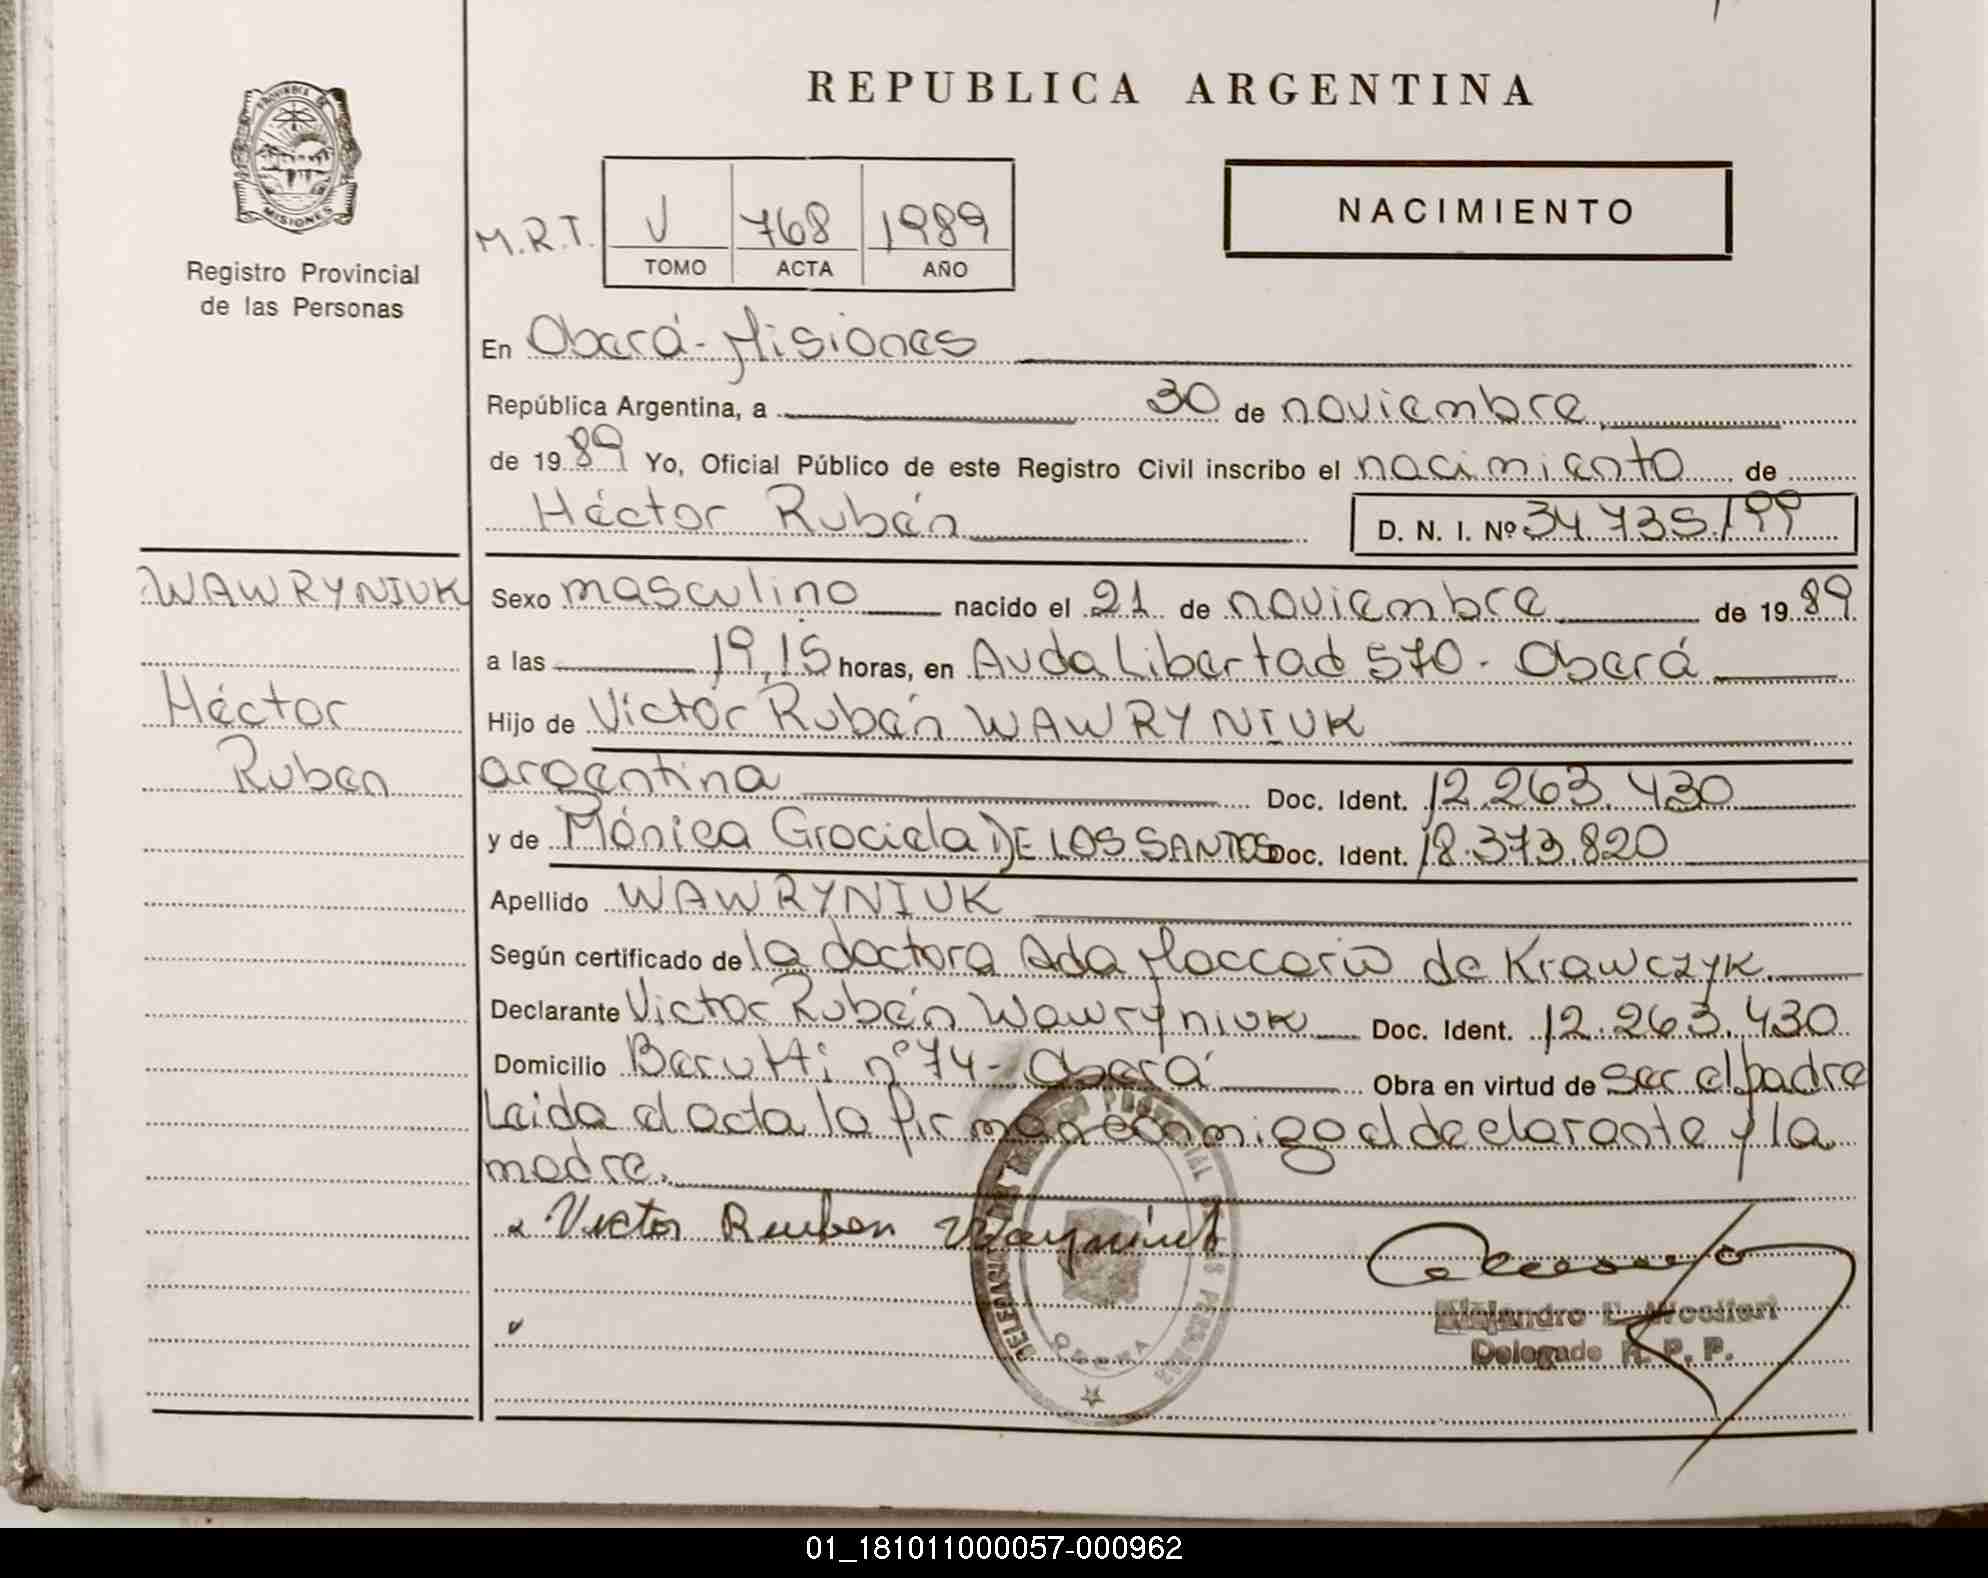 REPUBLICA ARGENTINA
PROVINCIA DE
MISIONES
Registro Provincial
de las Personas
M.R.T. V 768 1989
TOMO ACTA AÑO
NACIMIENTO
En Oberá - Misiones
República Argentina, a 30 de noviembre
de 1989 Yo, Oficial Público de este Registro Civil inscribo el nacimiento de
Héctor Rubén D. N. I. Nº 34.735.199
WAWRYNIUK
Héctor
Ruben
Sexo masculino nacido el 21 de noviembre de 1989
a las 19,15 horas, en Avda Libertad 570 - Oberá
Hijo de Victor Rubén WAWRYNIUK
argentina Doc. Ident. 12.263.430
y de Mónica Graciela DE LOS SANTOS Doc. Ident. 18.373.820
Apellido WAWRYNIUK
Según certificado de la doctora Ada Maccario de Krawczyk
Declarante Victor Rubén Wawryniuk Doc. Ident. 12.263.430
Domicilio Berutti nº 74 - Oberá Obra en virtud de ser el padre
Leida el acta la firman conmigo el declarante y la
madre.
Victor Ruben
Alejandro E.
Delegado R. P. P.
OBERA
01_181011000057-000962